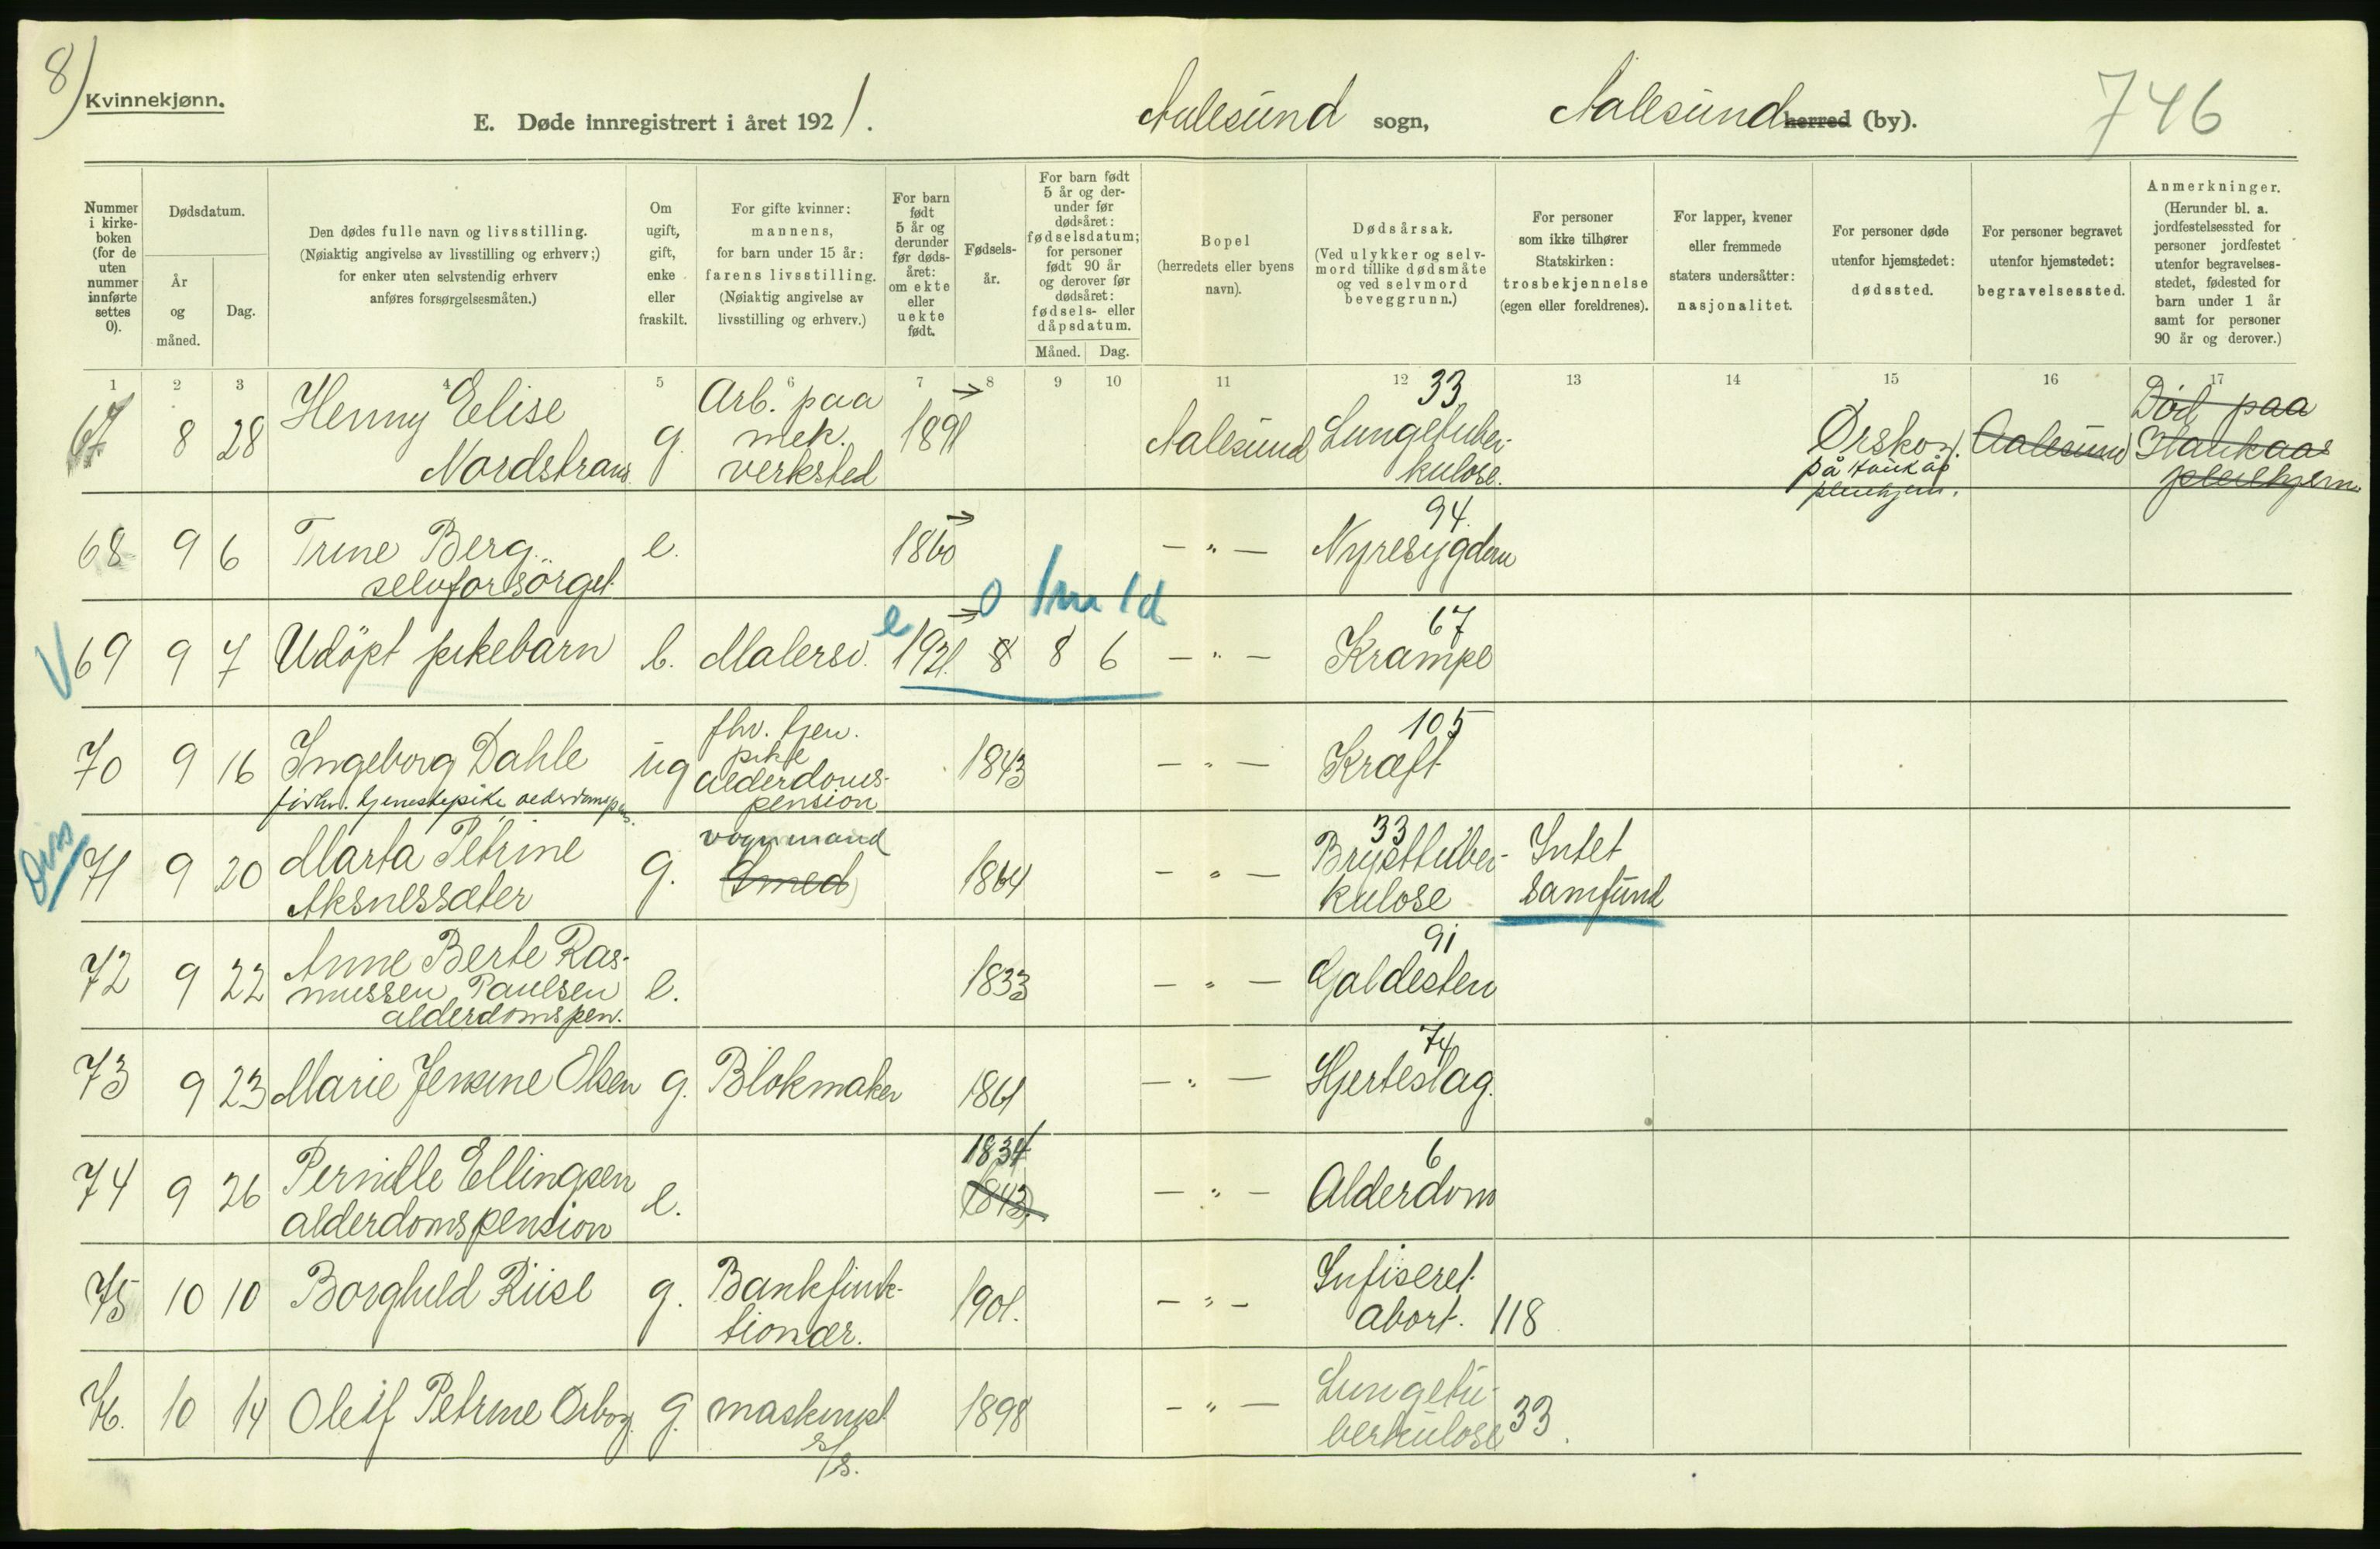 8)
Kvinnekjønn.
E. Døde innregistrert i året 1921.
Aalesund sogn,
Aalesund herred (by).
746
Nummer i kirkeboken (for de uten nummer innførte settes 0).
Dødsdatum.
År og måned.
Dag.
Den dødes fulle navn og livsstilling.
(Nøiaktig angivelse av livsstilling og erhverv;)
for enker uten selvstendig erhverv
anføres forsørgelsesmåten.)
Om ugift, gift, enke eller fraskilt.
For gifte kvinner:
mannens,
for barn under 15 år:
farens livsstilling.
(Nøiaktig angivelse av
livsstilling og erhverv.)
For barn født 5 år og derunder før dødsåret: om ekte eller uekte født.
Fødselsår.
For barn født 5 år og derunder før dødsåret: fødselsdatum; for personer født 90 år og derover før dødsåret: fødsels- eller dåpsdatum.
Måned.
Dag.
Bopel
(herredets eller byens
navn).
Dødsårsak.
(Ved ulykker og selvmord tillike dødsmåte
og ved selvmord
beveggrunn.)
For personer
som ikke tilhører
Statskirken:
trosbekjennelse
(egen eller foreldrenes).
For lapper, kvener
eller fremmede
staters undersåtter:
nasjonalitet.
For personer døde
utenfor hjemstedet:
dødssted.
For personer begravet
utenfor hjemstedet:
begravelsessted.
Anmerkninger.
(Herunder bl. a.
jordfestelsessted for
personer jordfestet
utenfor begravelses-
stedet, fødested for
barn under 1 år
samt for personer
90 år og derover.)
1 2 3 4 5 6 7 8 9 10 11 12 13 14 15 16 17
67 8 28 Henny Elise
Nordstrand g. Arb. paa
mek.
verksted 1891 Aalesund 33
Lungetuber-
kulose. Ørskog.
Aalesund Død paa
68 9 6 Trine Berg.
selvforsörget e. 1860 — " — 94.
Nyresygdom
e 0 1m 1d
69 9 7 Udöpt pikebarn b. Malersv. 1921. 8 8 6 — " — 67
Krampe
70 9 16 Ingeborg Dahle
ug fhv. tjen.
pike
alderdoms-
pension 1843 — " — 105
Kræft
Diss
71 9 20 Marta Petrine
Aksnessæter g. vognmand
(Smed) 1864 — " — 33
Brysttuber-
kulose Intet
samfund
72 9 22 Anne Berte Ras-
mussen Paulsen
alderdomspen. e. 1833 — " — 91
Galdesten
73 9 23 Marie Jensine Olsen g. Blokmaker 1861 — " — 74
Hjerteslag.
74 9 26 Pernille Ellingsen
alderdomspension e. 1834
(1843). — " — 6
Alderdom
75 10 10 Borghild Riise g. Bankfunk-
tionær. 1901. — " — Infiseret
abort. 118
76. 10 14 Oleif Petrine g. maskinist
s/s. 1898 — " — Lungetu-
berkulose 33.